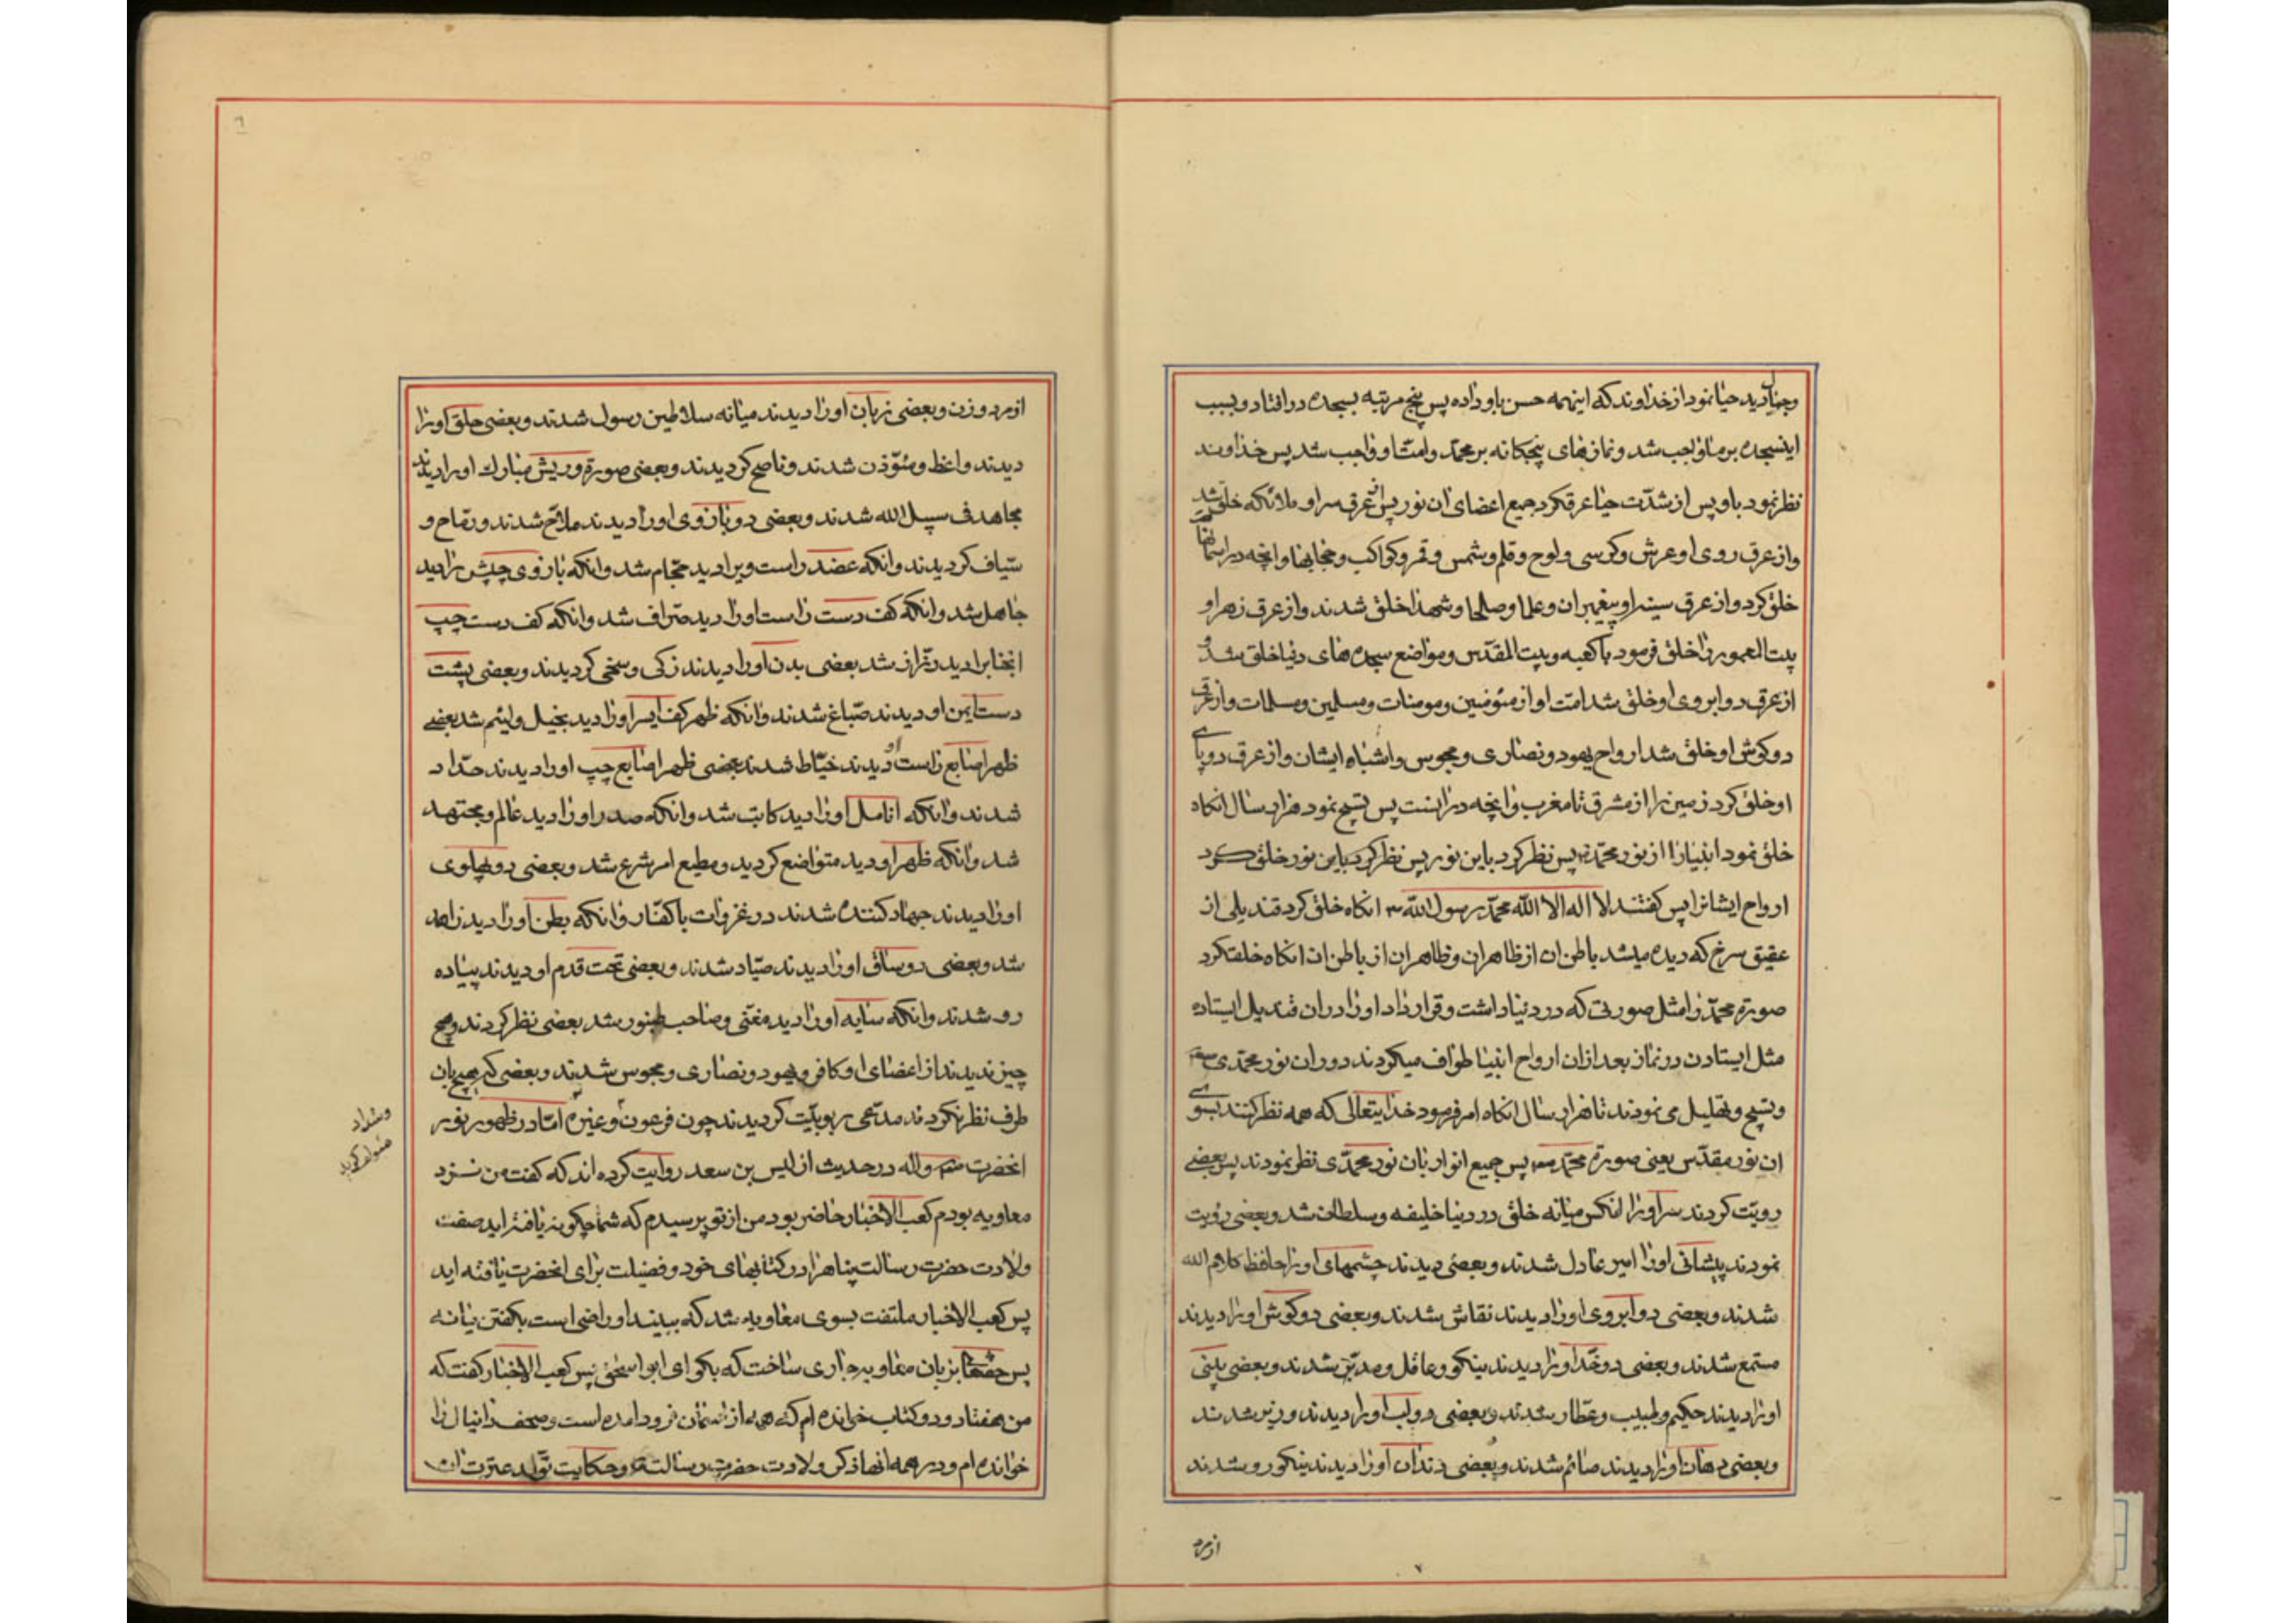 وجنان دید حیا نمود از خداوند که اینهمه حسن باو داده پس پنج مرتبه بسجده در افتاد و بسبب
اینسجده بر ما واجب شد و نمازهای پنجکانه بر محمّد و امتش واجب شد پس خداوند
نظر نمود باو پس از شدّت حیا عرق کرد جمیع اعضای ان نور پس از عرق سر او ملائکه خلق شد
و از عرق روی او عرش و کرسی و لوح و قلم و شمس و قمر و کواکب و حجابها و انچه در اسمانها
خلق کرد و از عرق سینه او پیغمبران و علما و صلحا و شهدا خلق شدند و از عرق زهر او
بیت المعمور را خلق فرمود با کعبه و بیت المقدّس و مواضع سجده های دنیا خلق شد و
از عرق دو ابروی او خلق شد امت او از مئومنین و مومنات و مسلمین و مسلمات و از عرق
دو کوش او خلق شد ارواح یهود و نصاری و مجوس و اشباه ایشان و از عرق دو پای
او خلق کرد زمین را از مشرق تا مغرب و انچه در انست پس تسبیح نمود هزار سال انکاه
خلق نمود انبیا را از نور محمّد پس نظر کرد باین نور پس نظر کرد باین نور خلق کرد
ارواح ایشانرا پس کفتند لا اله الا الله محمّد رسول الله انکاه خلق کرد قندیلی از
عقیق سرخ که دیده میشد باطن ان از ظاهر ان و ظاهر ان از باطن ان انکاه خلقت کرد
صورة محمّد را مثل صورتی که در دنیا داشت و قرار داد او را در ان قندیل ایستاده
مثل ایستادن در نماز بعد ازان ارواح انبیا طواف میکردند در ان نور محمّدی
و تسبیح و تهلیل می نمودند تا هزار سال انکاه امر فرمود خدایتعالی که همه نظر کنند بسوی
ان نور مقدّس یعنی صورة محمّد پس جمیع انوار بان نور محمّدی نظر نمودند پس بعضی
رویّت کردند سر او را انکس میانه خلق در دنیا خلیفه و سلطان شد و بعضی رؤیت
نمودند پیشانی او را امیر عادل شدند و بعضی دیدند چشمهای او را حافظ کلام الله
شدند و بعضی دو ابروی او را دیدند نقاش شدند و بعضی دو کوش او را دیدند
مستمع شدند و بعضی دو خدّ او را دیدند نیکو و عاقل و مدبّر شدند و بعضی بینی
او را دیدند حکیم و طبیب و عطّار شدند و بعضی دو لب او را دیدند وزیر شدند
و بعضی دهان او را دیدند صائم شدند و بعضی دندان او را دیدند نیکو رو شدند
از مرد
از مرد و زن و بعضی زبان او را دیدند میانه سلاطین رسول شدند و بعضی حلق او را
دیدند واعظ و مئوّذن شدند و ناصح کردیدند و بعضی صورة و ریش مبارك او را دیدند
مجاهد فی سبیل الله شدند و بعضی دو بازوی او را دیدند ملاّح شدند و رمّاح و
سیّاف کردیدند و انکه عضد راست ویرا دید حجّام شد و انکه بازوی چپش را دید
جاهل شد و انکه کف دست راست او را دید صرّاف شد و انکه کف دست چپ
انجنابرا دید رزّاز شد بعضی بدن او را دیدند زکی و سخی کردیدند و بعضی پشت
دست ایمن او دیدند صبّاغ شدند و انکه ظهر کف ایسر او را دید بخیل و لئیم شد بعضی
ظهر اصابع راست او دیدند خیّاط شدند بعضی ظهر اصابع چپ او را دیدند حدّاد
شدند و انکه انامل او را دید کاتب شد و انکه صدر او را دید عالم و مجتهد
شد و انکه ظهر او دید متواضع کردید و مطیع امر شرع شد و بعضی دو پهلوی
او را دیدند جهاد کننده شدند در غزوات با کفّار و انکه بطن او را دید زاهد
شد و بعضی دو ساق او را دیدند صیّاد شدند و بعضی تحت قدم او دیدند پیاده
رو شدند و انکه سایه او را دید مغنّی و صاحب طنبور شد بعضی نظر کردند و هیچ
چیز ندیدند از اعضای او کافر و یهود و نصاری و مجوس شدند و بعضی که هیچ بان
طرف نظر نکردند مدّعی ربوبیّت کردیدند چون فرعون و غیره امّا در ظهور نور
انحضرت واله در حدیث از لیس بن سعد روایت کرده اند که کفت من نزد
معاویه بودم کعب الاخبار حاضر بود من از تو پرسیدم که شما چکونه یافته اید صفت
ولادت حضرت رسالت پناهرا در کتابهای خود و فضیلت برای انحضرت یافته اید
پس کعب الاخبار ملتفت بسوی معاویه شد که ببیند او راضی است بکفتن یا نه
پس بزبان معاویه جاری ساخت که بکو ای ابو اسحق پس کعب الاخبار کفت که
من هفتاد و دو کتاب خوانده ام که همه از اسمان فرود امده است و صحف دانیال را
خوانده ام و در همه انها ذکر ولادت حضرت رسالت و حکایت تولد عترت ان
و شداد